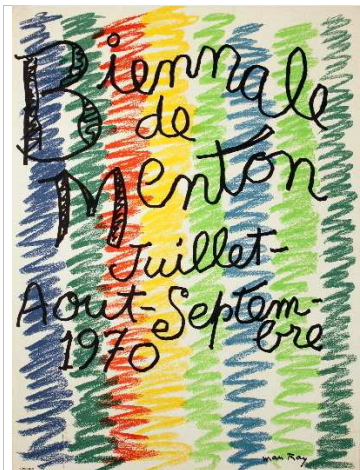 Biennale
de
Menton
Juillet-
Aout-Septem-
1970 bre
Man Ray